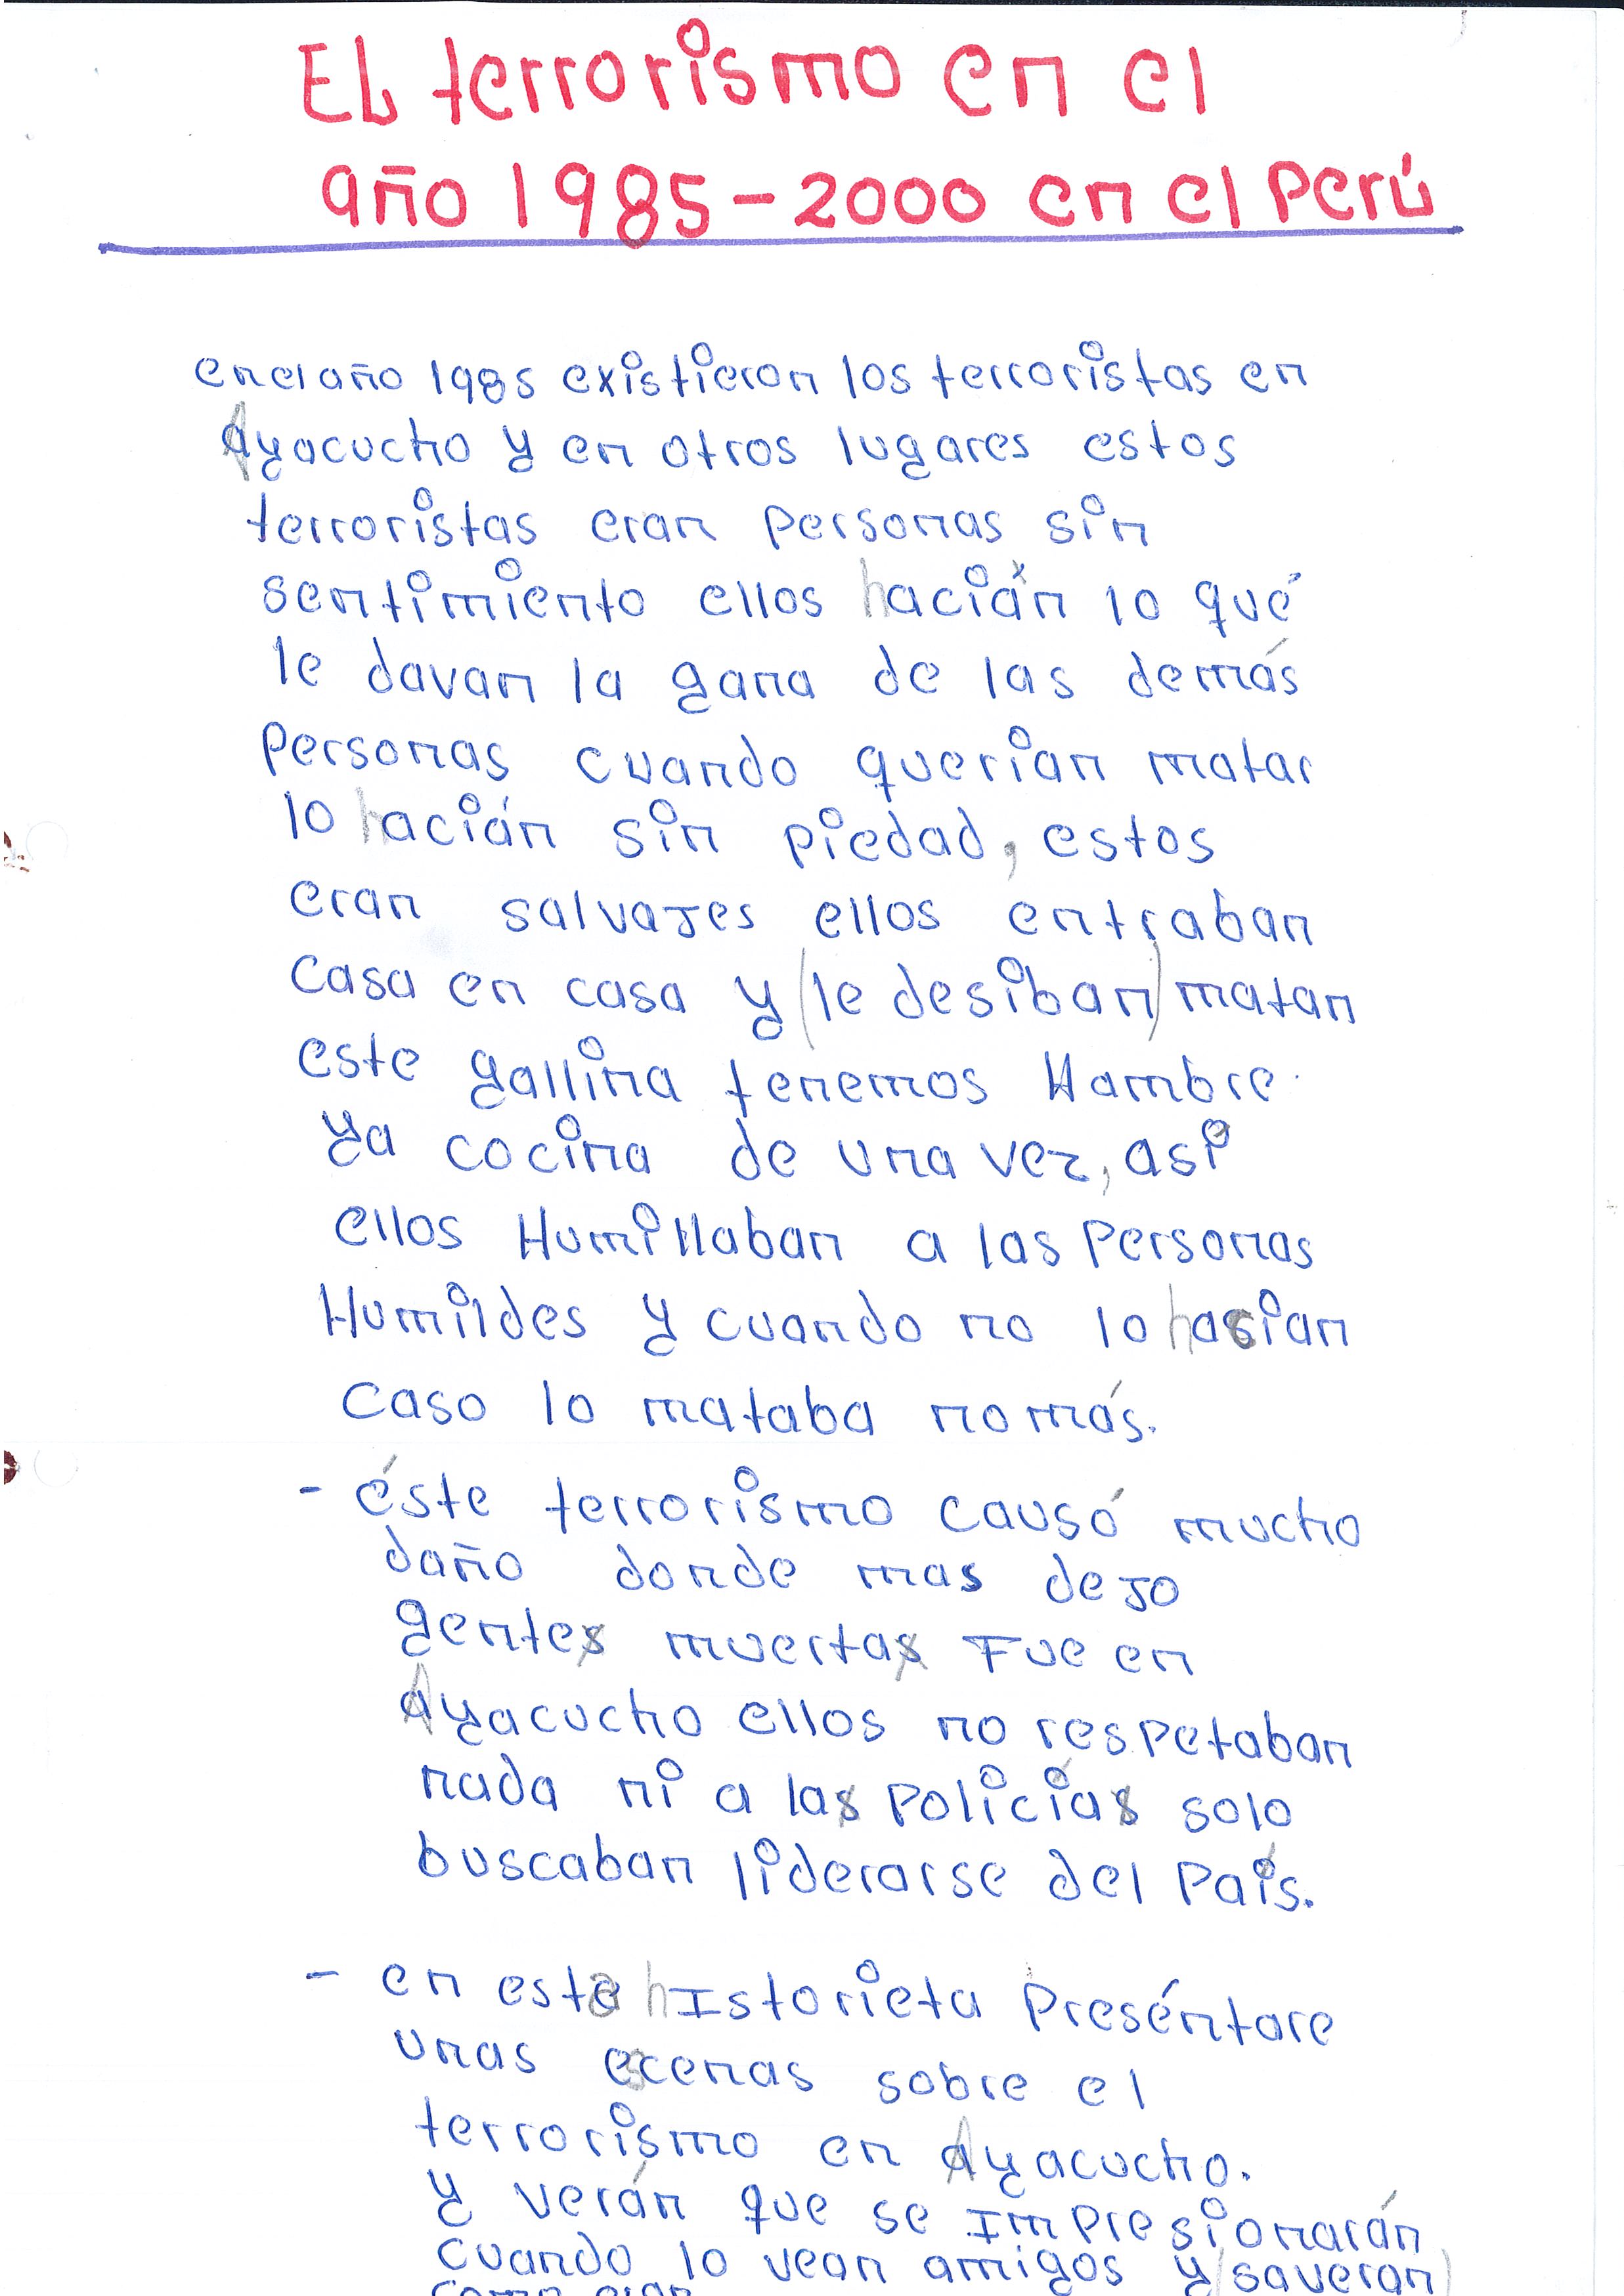 El terrorismo en el
año 1985-2000 en el Perú
en el año 1985 existieron los terroristas en
Ayacucho y en otros lugares estos
terroristas eran personas sin
sentimiento ellos hacian lo qué
le davan la gana de las demás
personas cuando querian matar
lo hacián sin piedad, estos
eran salvajes ellos entraban
casa en casa y (le desiban) matan
este gallina tenemos Hambre
ya cocina de una vez, asi
ellos Humillaban a las personas
Humildes y cuando no lo hacian
caso lo mataba no más.
- éste terrorismo causó mucho
daño donde mas dejo
gente muerta Fue en
Ayacucho ellos no respetaban
nada ni a la policía solo
buscaban liderarse del País.
- en esta hIstorieta Preséntare
unas escenas sobre el
terrorismo en Ayacucho.
y verán que se Impresionarán
cuando lo vean amigos y (saveran)
como eran